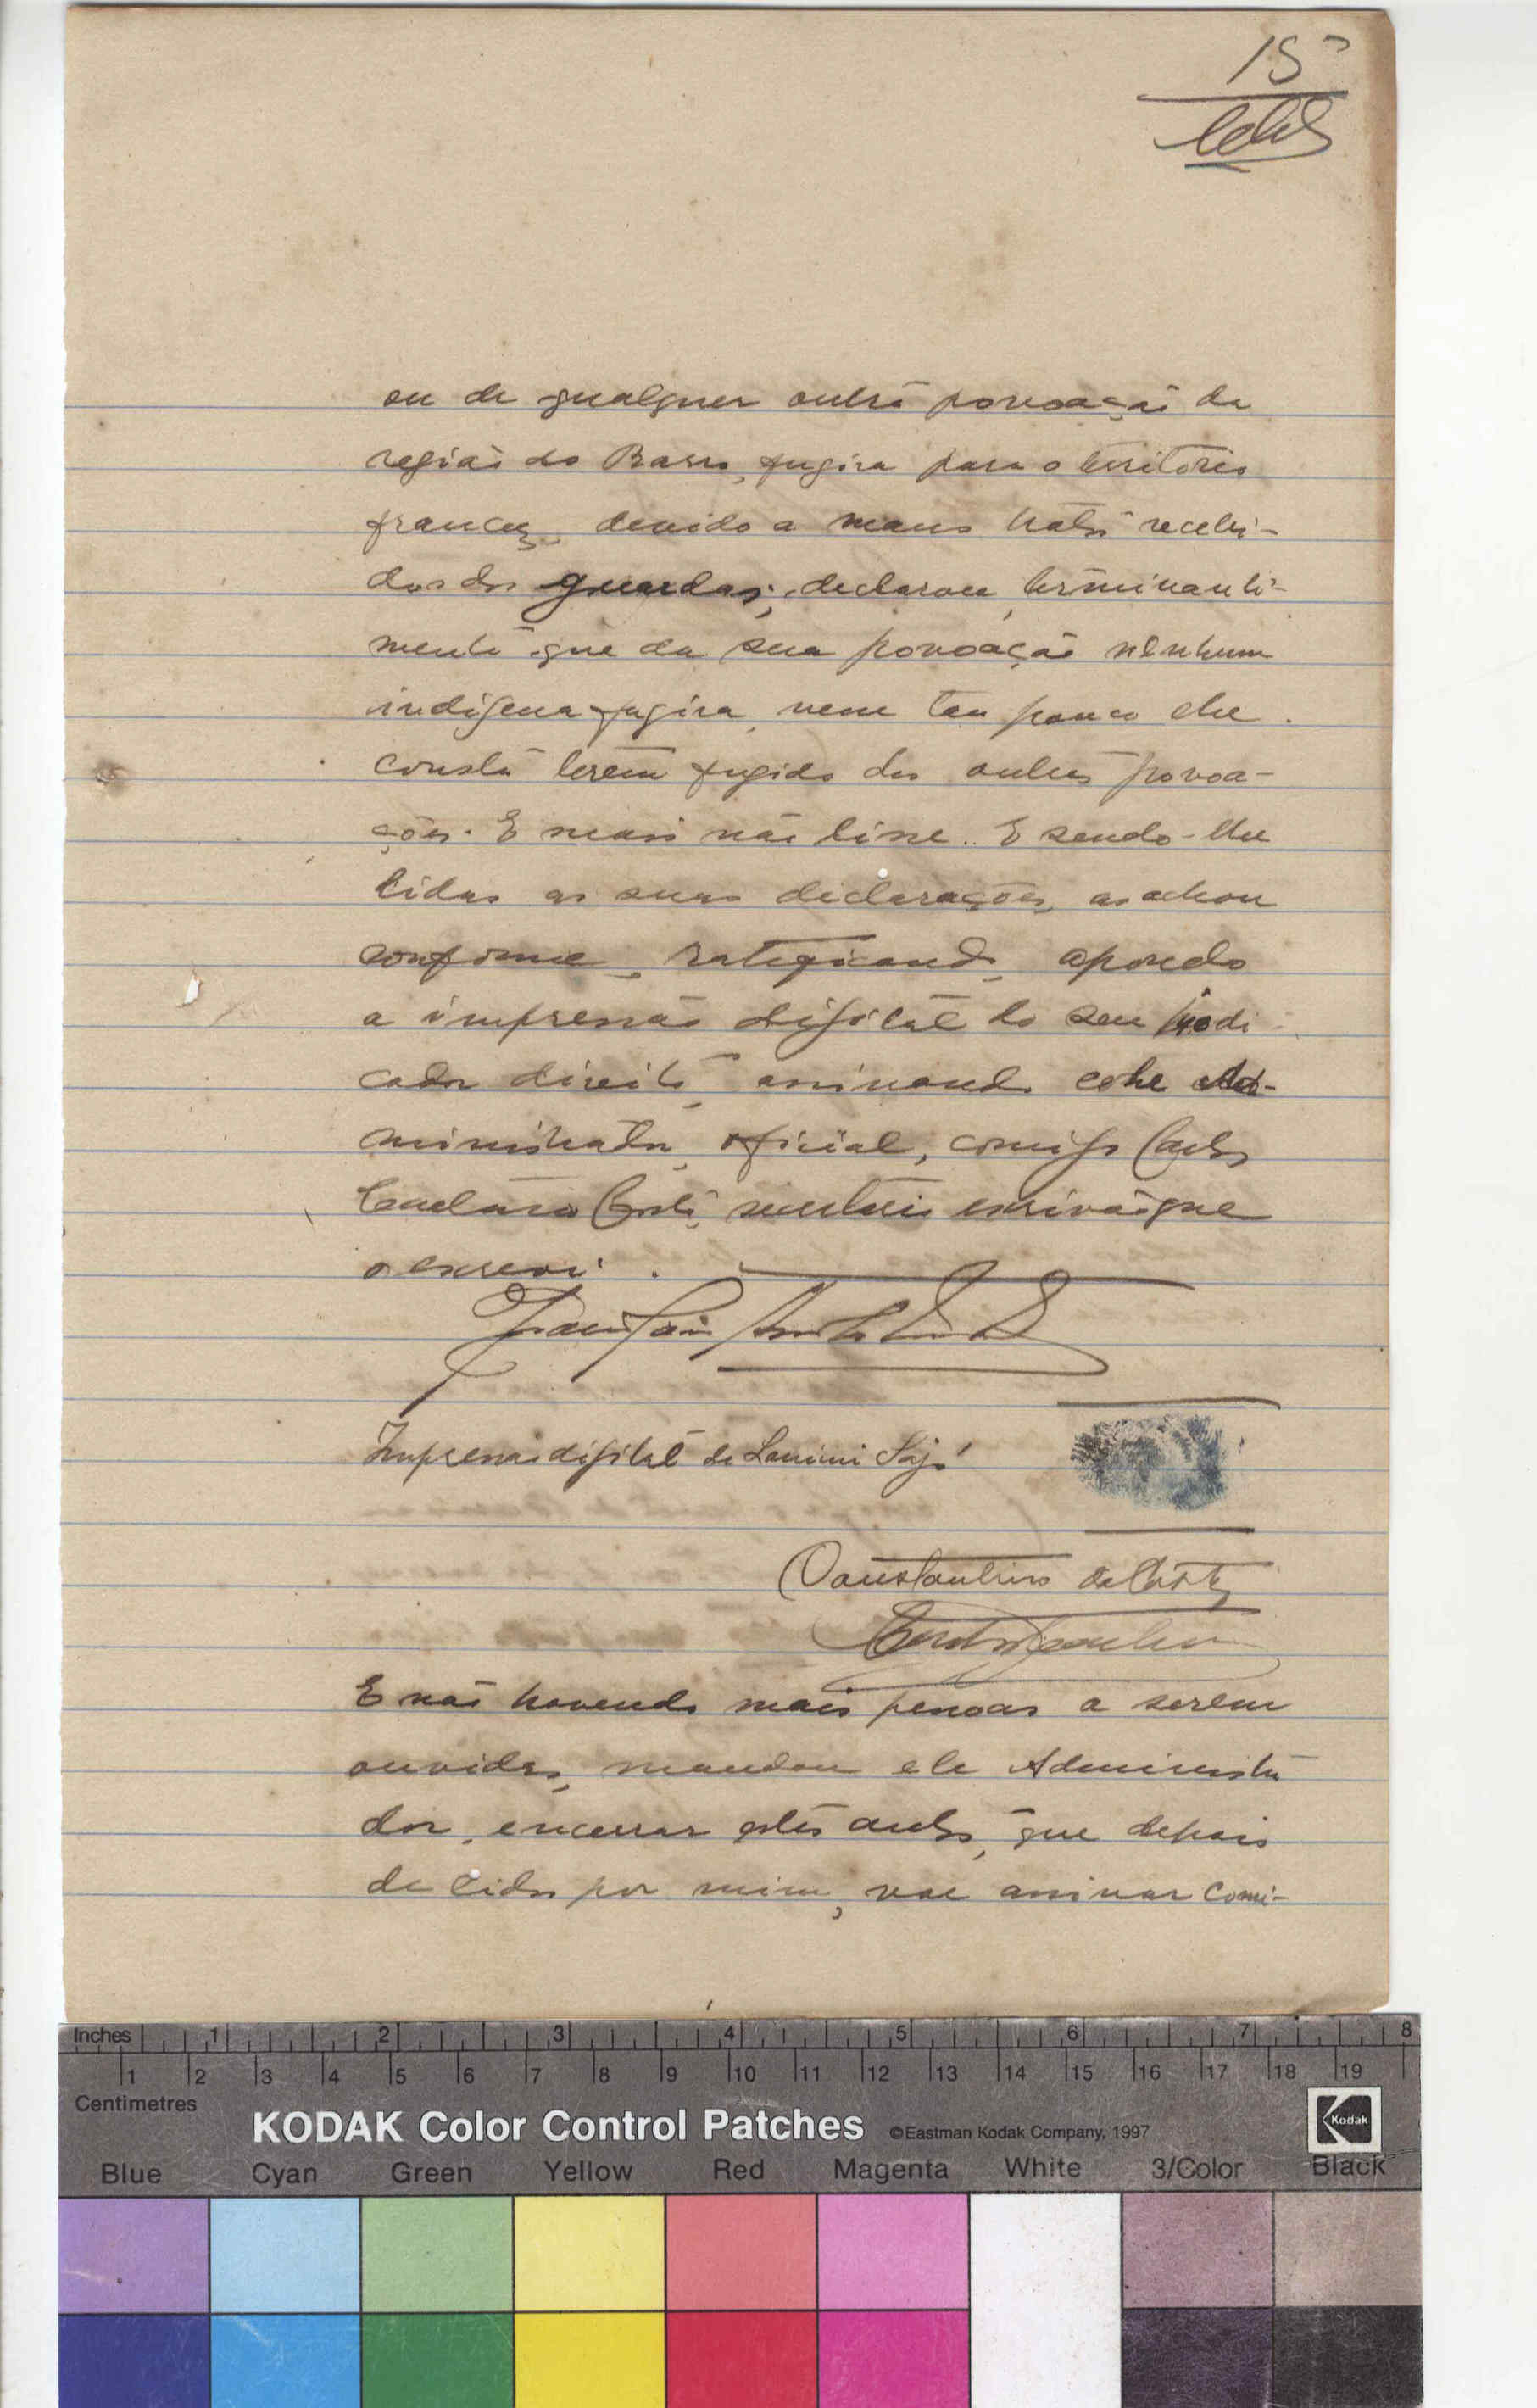 15
ou de qualquer outra povoação da
região do Barro, fugira para o territorio
francez, devido a maus tratos recebi-
dos dos guardas; declarou, terminante-
mente que da sua povoação nenhum
indigena fugira, nem tão pouco lhe
consta terem fugido das outras povoa-
ções. E mais não disse. E sendo-lhe
lidas as suas declarações, as achou
conforme, ratificando, apondo
a impressão digital do seu indi
cador direito, assinando este Ad-
ministrador, oficial, comigo Carlos
Costa, escrivão que
o escrevi.
Impressão digital de Lamini Sajó
Constantino da Costa
E não havendo mais pessoas a serem
ouvidas, mandou ele Administra
dor, encerrar estes autos, que depois
de lidos por mim, vae assinar comi-
Inches 1 2 3 4 5 6 7 8
1 2 3 4 5 6 7 8 9 10 11 12 13 14 15 16 17 18 19
Centimetres
KODAK Color Control Patches ©Eastman Kodak Company, 1997 Kodak
Blue Cyan Green Yellow Red Magenta White 3/Color Black